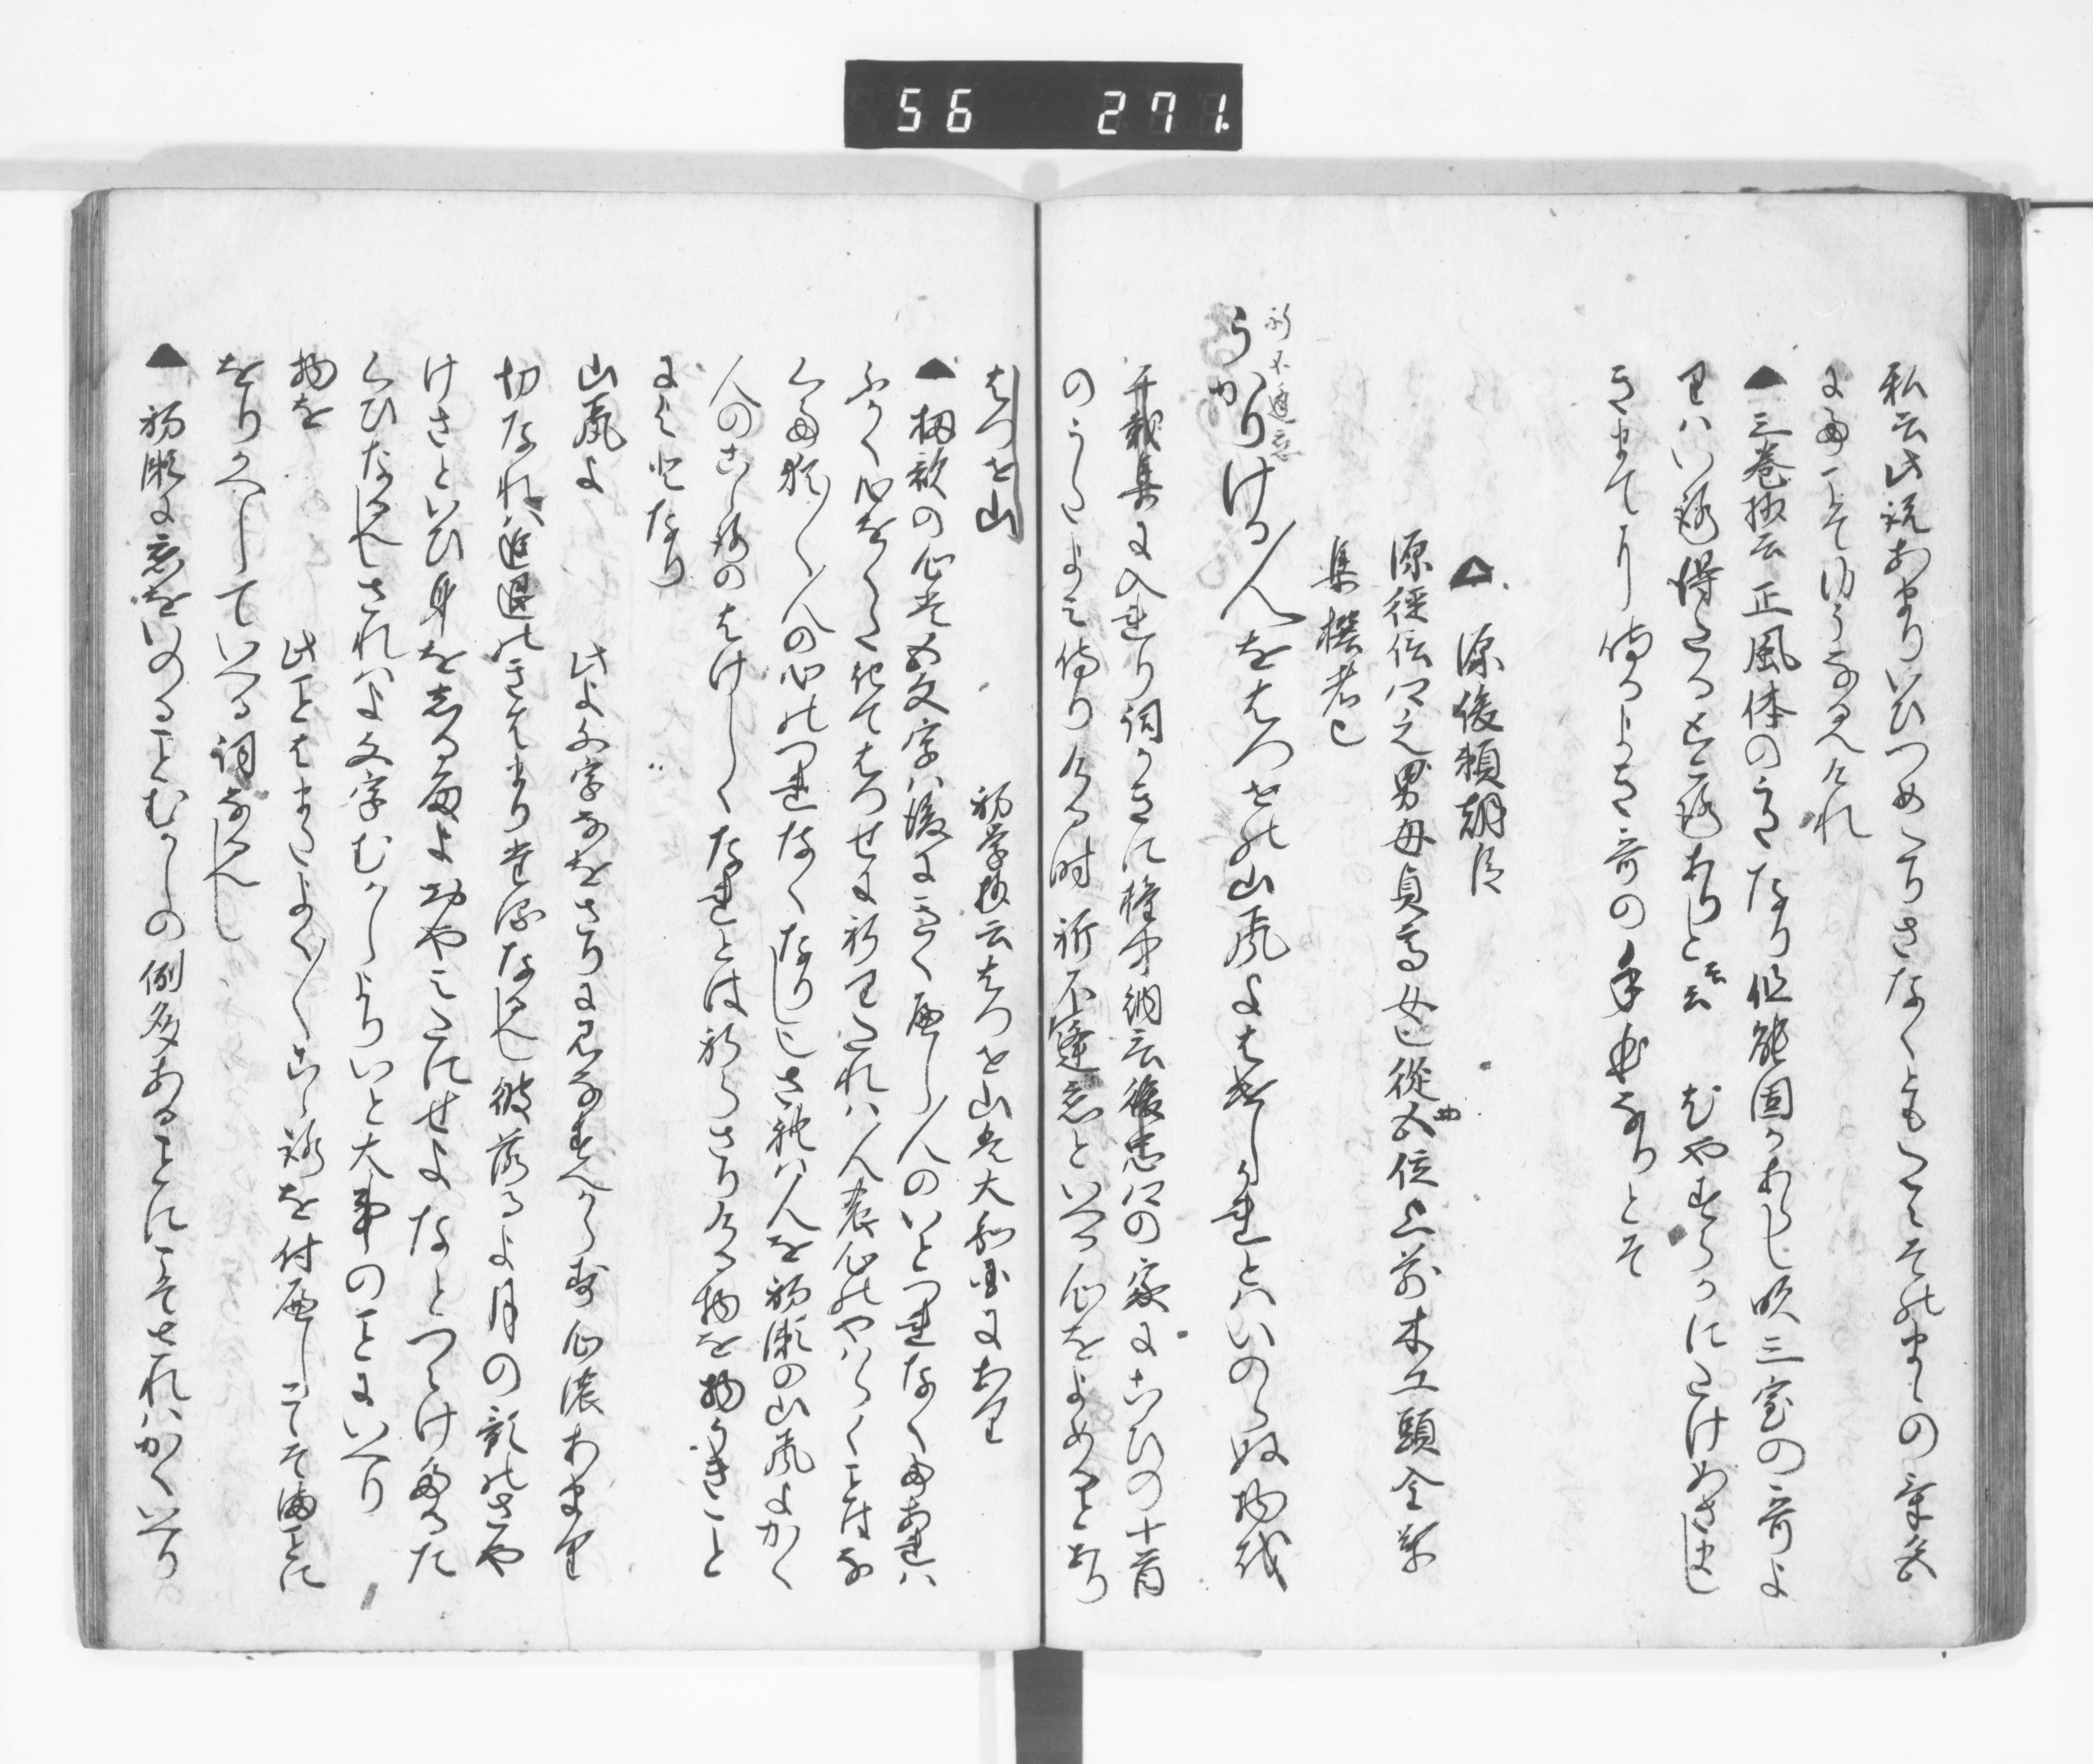 56 271
私云此説あまりいひつめたりさなくともたゝそのまゝの
にてこそゆうなるへけれ
▲三巻抄云正風体の哥なり但能因かあらし吹三室の哥よ
りハいひ得たる所ありと云云 むやすらかにたけめさまし
きまてに侍るよき哥の手本なりとそ
▲源俊頼朝臣
源経信口之男母貞高女也従四位上前木工頭金葉
集撰者也
祈不逢恋
うかりける人をはつせの山颪よはけしかれとハいのらぬ物を
千載集に入れり詞かきに権中納言俊忠口の家にこひの十首
のうたよみ侍りける時祈不逢恋といへる心をよめるとあり
はつせ山 初学抄云はつせ山は大和国にあり
▲抑歌の心は五文字ハ後にきく へし人のいとつれなくあれハ
ふかく心をつくし化てはつせに祈りたれハ人の心のやハらくことはな
くて猶人の心のつれなくなりしさてハ人を初瀬の山颪よかく
人のこゝろのはけしくなれとは祈らさりける物を物うきこと
にこそとなり
山颪よ 此よ文字なをさりに見なすへからす心濃あまり
切なれハ進退のきはまり なるへし彼 月の影のさや
けさといひ身をしる雨よ心やみたにせよなとつゝけたるた
くひなるへしされハよ文字むかしよりいと大事のことにいへり
物を 此ことはまたよく心を付へしこそことに
をりかへしていへる詞なるへし
▲初瀬に恋をいのることむかしの例多あることにこそされハかくいへり